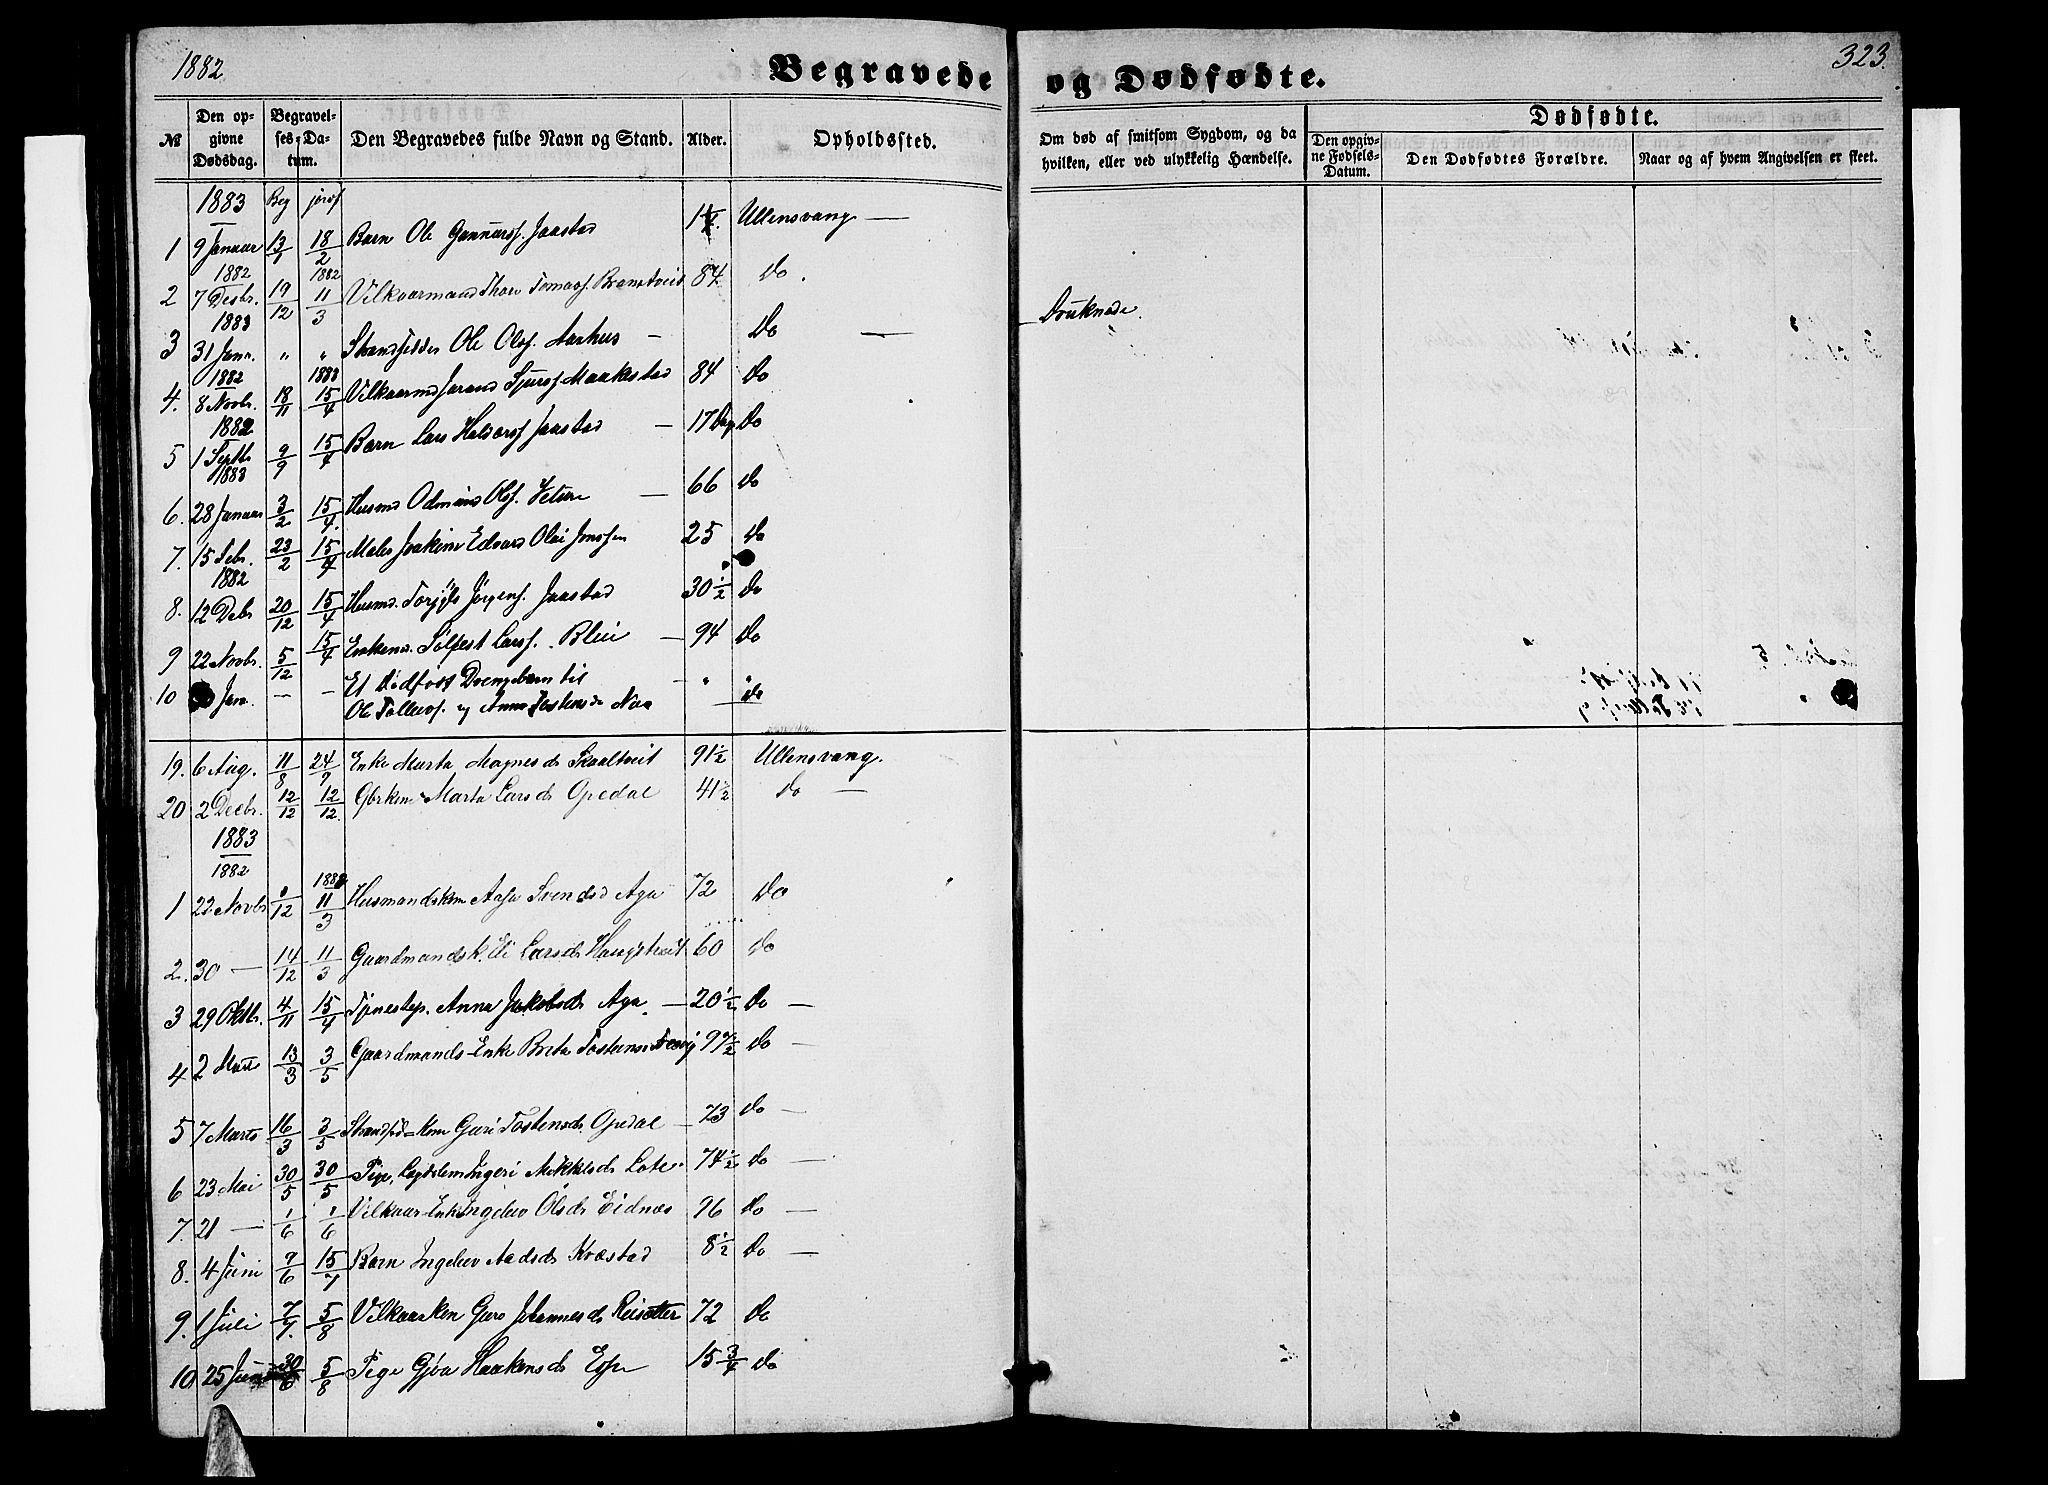 1882
Begravede og Dødfødte.
323.
№
Den opgivne Dødsdag.
Begravelses-Datum.
Den Begravedes fulde Navn og Stand.
Alder.
Opholdssted.
Om død af smitsom Sygdom, og da hvilken, eller ved ulykkelig Hændelse.
Dødfødte.
Den opgivne Fødsels-Datum.
Den Dødfødtes Forældre.
Naar og af hvem Angivelsen er skeet.
1883 Beg jords
1 9 Januar 13/1 18/2 Barn Ole Gunnars. Jaastad Ullensvang —
1882 1882
2 7 Desbr. 19/12 11/3 Vilkaarmand Thore Tomass. 84 Do.
1883
3 31 Jan. " " Strandsidder Ole Olss. Aarhus — Do — Druknede.
1882 1883
4. 8 Novbr. 18/11 15/4 Vilkaarmd Sjurs. Maakestad 84 Do
1882
5 1 Septb. 9/9 15/4 Barn Lars Haldors. Jaastad — 17 Dage Do
1883
6. 28 Januar 3/2 15/4. Husmd Odmund Olss. — 66 Do
7. 15 Febr. 23/2 15/4 Maler Joakim Edvard Olai Jonssen 25 Do
1882
8. 12 Debr 20/12 15/4 Husmd. Torgils Jørgens. Jaastad 30 1/2 Do
9 22 Novbr. 5/12 15/4 Enkemd. Sølfest Larss. Bleie — 94 Do
10 Jan. — — Et Dødfødt Drengebarn til — " "
Ole Tollevs. og Anna Tostensd Naa do
19. 6 Aug. 11/8 24/9 Enke Marta Magnesd Skaaltveit 91 1/2 Ullensvang.
20 2 Decbr. 12/12 12/12. Gbrkone Marta Larsd Opedal 41 1/2 do —
1883
1882 1883
1 22 Novbr /12 11/3 Husmandskone Aasa Svendsd Aga 72 Do
2. 30 — 14/12 11/3 Gaardmandsk. Eli Larsd. Haugstveit 60 Do
3 29 Oktbr. 4/11 15/4 Tjenestep. Anna Jakobsd. Aga. — 20 1/2 Do —
4 2 13/3 3/5 Gaardmands-Enke Brita Tostensd Do —
5 7 Marts 16/3 3/5 Guri Tostensd. Opedal — 73 Do —
6 23 Mai 30/5 30/5 Pige, Lægdslem Ingeri Mikkelsd. Lote. 74 1/2 Do —
7. 21 — 1/6 1/6 Vilkaar-Enke Ingelev Olsd. Eidnæs 96 Do —
8. 4 Juni 9/6 15/7 Barn Ingelev Aadsd. Kvæstad 8 1/2 Do —
9. 1 Juli 7/7. 5/8 Vilkaarkone Guro Johannesd. Reisæter 72 Do
10 25 Juni 30/6 5/8 Pige Gjøa Haakensd. Espe 15 3/4 Do